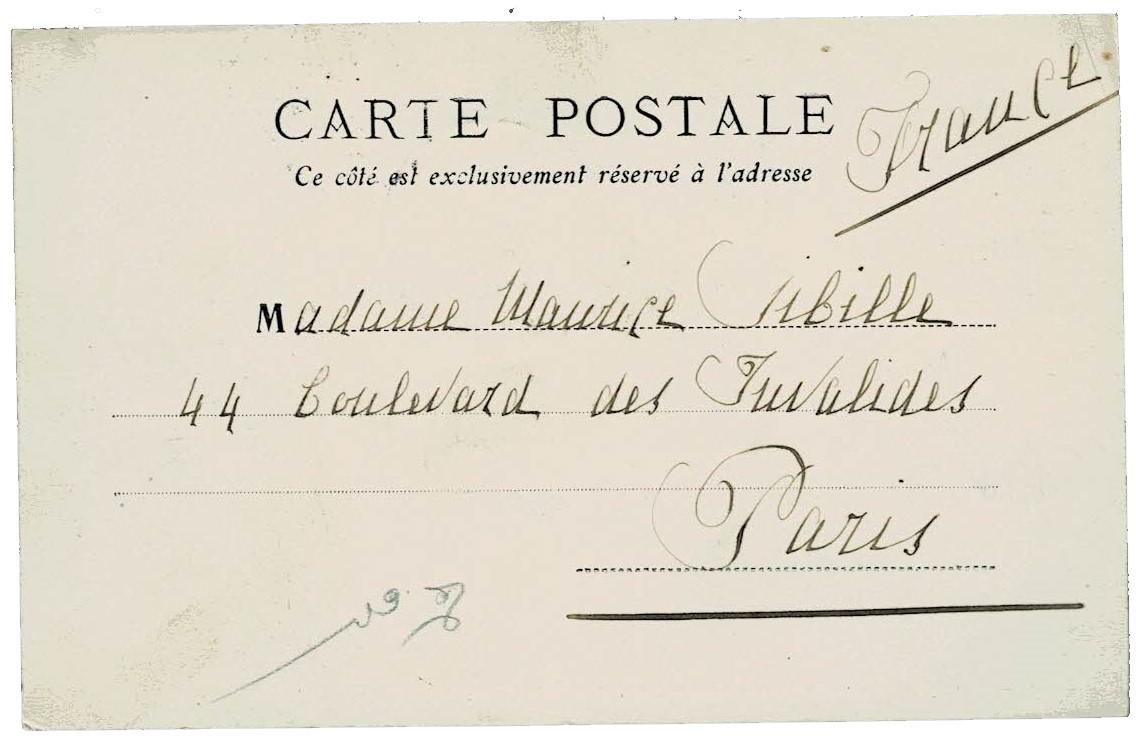 CARTE POSTALE
France
Ce côté est exclusivement réservé à l'adresse
Madame Maurice Sibille
44 boulevard des Invalides
Paris